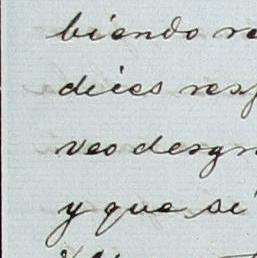 biendo re
dices resp
veo desgr
y que si